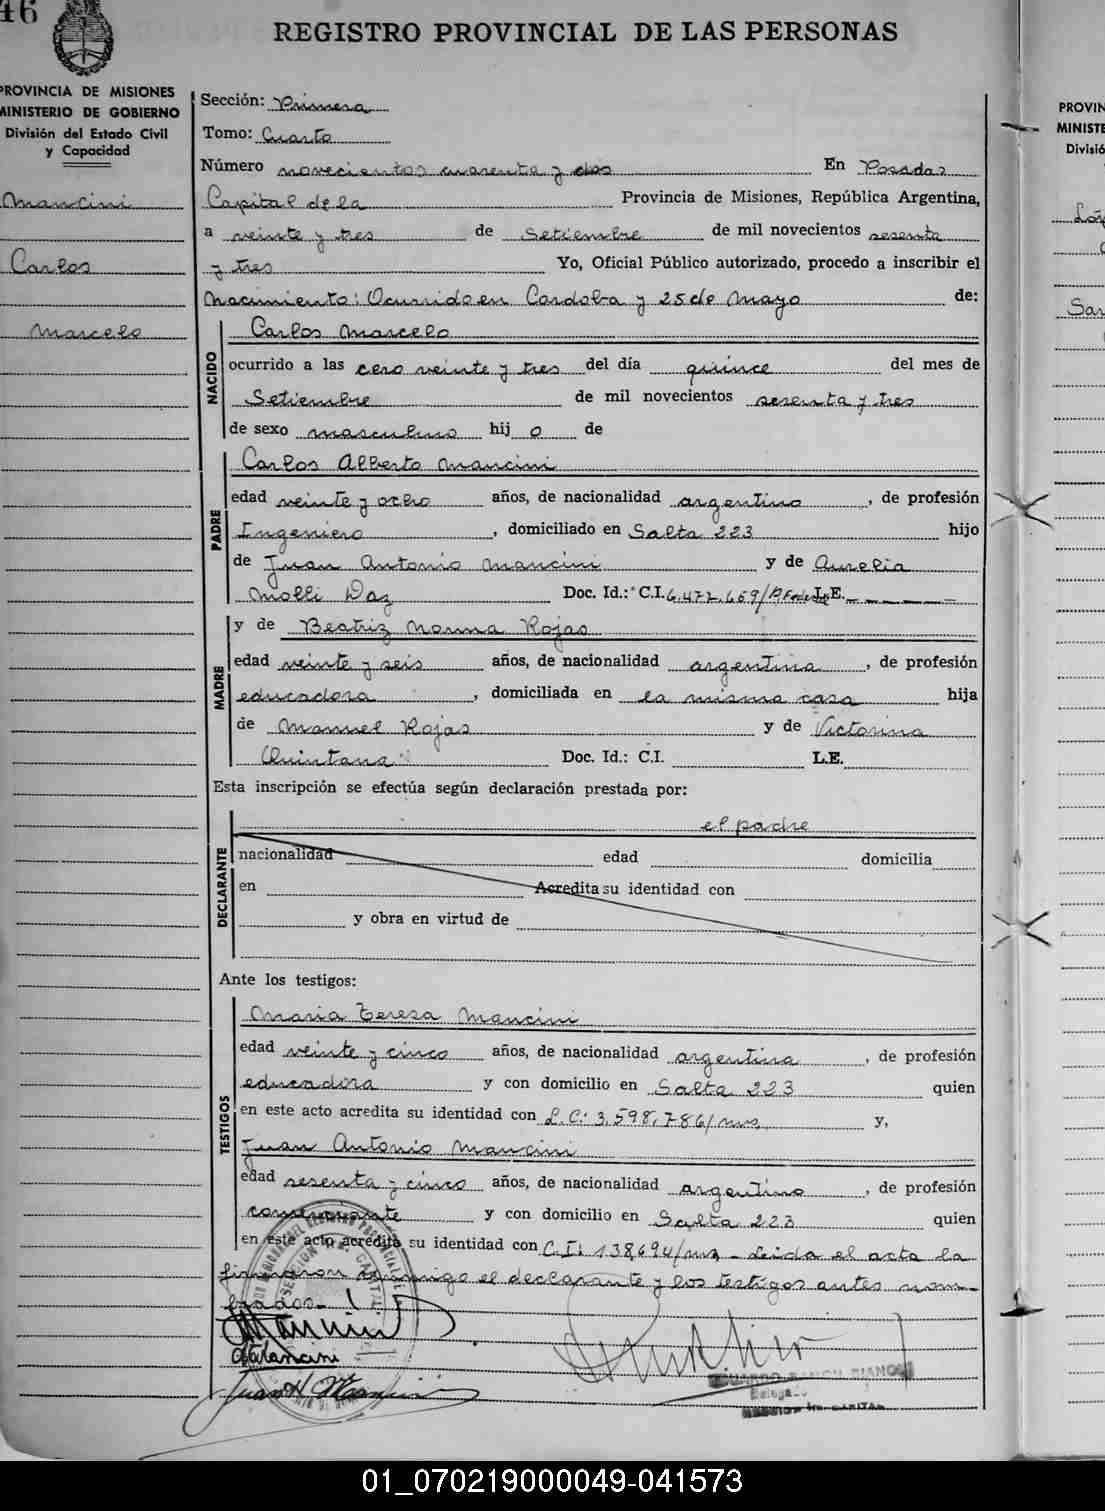 46
REGISTRO PROVINCIAL DE LAS PERSONAS
PROVINCIA DE MISIONES
MINISTERIO DE GOBIERNO
División del Estado Civil
y Capacidad
Mancini
Carlos
Marcelo
Sección: Primera
Tomo: Cuarto
Número novecientos cuarenta y dos En Posadas
Capital de la Provincia de Misiones, República Argentina,
a veinte y tres de Setiembre de mil novecientos sesenta
y tres Yo, Oficial Público autorizado, procedo a inscribir el
Nacimiento: Ocurrido en Cordoba y 25 de Mayo de:
NACIDO
Carlos Marcelo
ocurrido a las cero veinte y tres del día quince del mes de
Setiembre de mil novecientos sesenta y tres
de sexo masculino hij o de
PADRE
Carlos Alberto Mancini
edad veinte y ocho años, de nacionalidad argentino, de profesión
Ingeniero, domiciliado en Salta 223 hijo
de Juan Antonio Mancini y de Aurelia
Molli Daz Doc. Id.: C.I. 6.472.659/ L.E.
MADRE
y de Beatriz Norma Rojas
edad veinte y seis años, de nacionalidad argentina, de profesión
educadora, domiciliada en la misma casa hija
de Manuel Rojas y de Victorina
Quintana Doc. Id.: C.I. L.E.
Esta inscripción se efectúa según declaración prestada por:
DECLARANTE
el padre
nacionalidad edad domicilia
en Acredita su identidad con
y obra en virtud de
Ante los testigos:
TESTIGOS
Maria Teresa Mancini
edad veinte y cinco años, de nacionalidad argentina, de profesión
educadora y con domicilio en Salta 223 quien
en este acto acredita su identidad con L.C: 3.598.786/mns y,
Juan Antonio Mancini
edad sesenta y cinco años, de nacionalidad argentino, de profesión
comerciante y con domicilio en Salta 223 quien
en este acto acredita su identidad con C.I: 138,694/mns - Leida el acta la
firmaron conmigo el declarante y los testigos antes nom-
brados-
Mancini
Juan A Mancini
PROVIN
MINISTE
Divisió
01_070219000049-041573